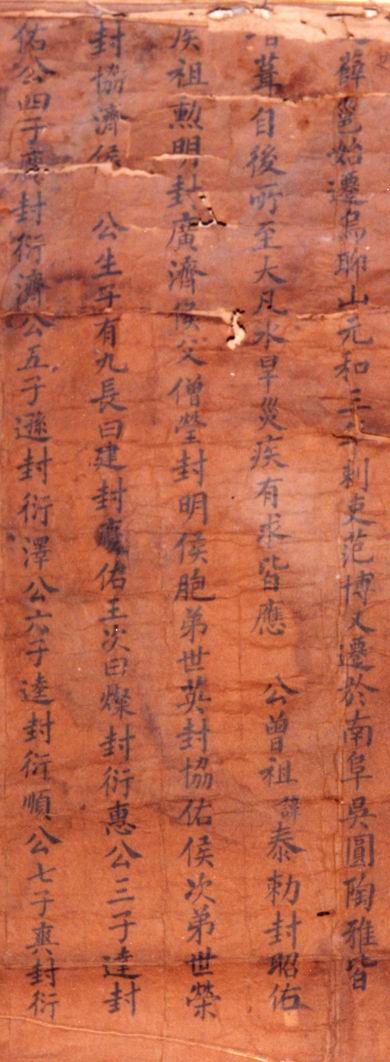 薜邕始遷烏聊山元和三年刺吏范博文遷於南阜吳圓陶雅皆
葺自後所至大凡水旱災疾有求皆應 公曾祖諱泰勑封昭佑
侯祖勲明封廣濟侯父僧瑩封明侯胞弟世英封協佑侯次弟世榮
封協濟侯 公生子有九長曰建封佑王次曰燦封衍惠公三子達封
佑公四子廣封衍濟公五子遜封衍澤公六子逵封衍順公七子爽封衍